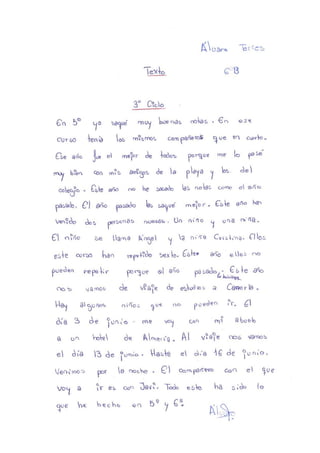 Álvaro Torres
Texto 6ºB
3º Ciclo
En 5º yo saqué muy buenas notas. En ese
curso tenía los mismos compañeros que en cuarto.
Ese año fue el mejor de todos porque me lo pasé
muy bien con mis amigos de la playa y los del
colegio. Este año no he sacado las notas como el año
pasado. El año pasado las saqué mejor. Este año han
venido dos personas nuevas. Un niño y una niña.
El niño se llama Ángel y la niña Cristina. Ellos
este curso han repetido sexto. Este año ellos no
pueden repetir porque el año pasado. Este año
nos vamos de viaje de estudios a Cazorla.
Hay algunos niños que no pueden ir. El
día 3 de junio me voy con mi abuelo
a un hotel de Almería. Al viaje nos vamos
el día 13 de junio. Hasta el día 16 de junio.
Venimos por la noche. El compañero con el que
voy a ir es con Javi. Todo esto ha sido lo
que he hecho en 5º y 6º.